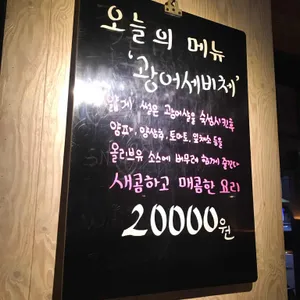 오늘의 메뉴
'광어세비체'
얇게 썰은 광어살을 숙성시킨후
양파, 양상추, 토마토, 잎채소 등을
올리브유 소스에 버무려 함께 즐긴다
새콤하고 매콤한 요리
20000원